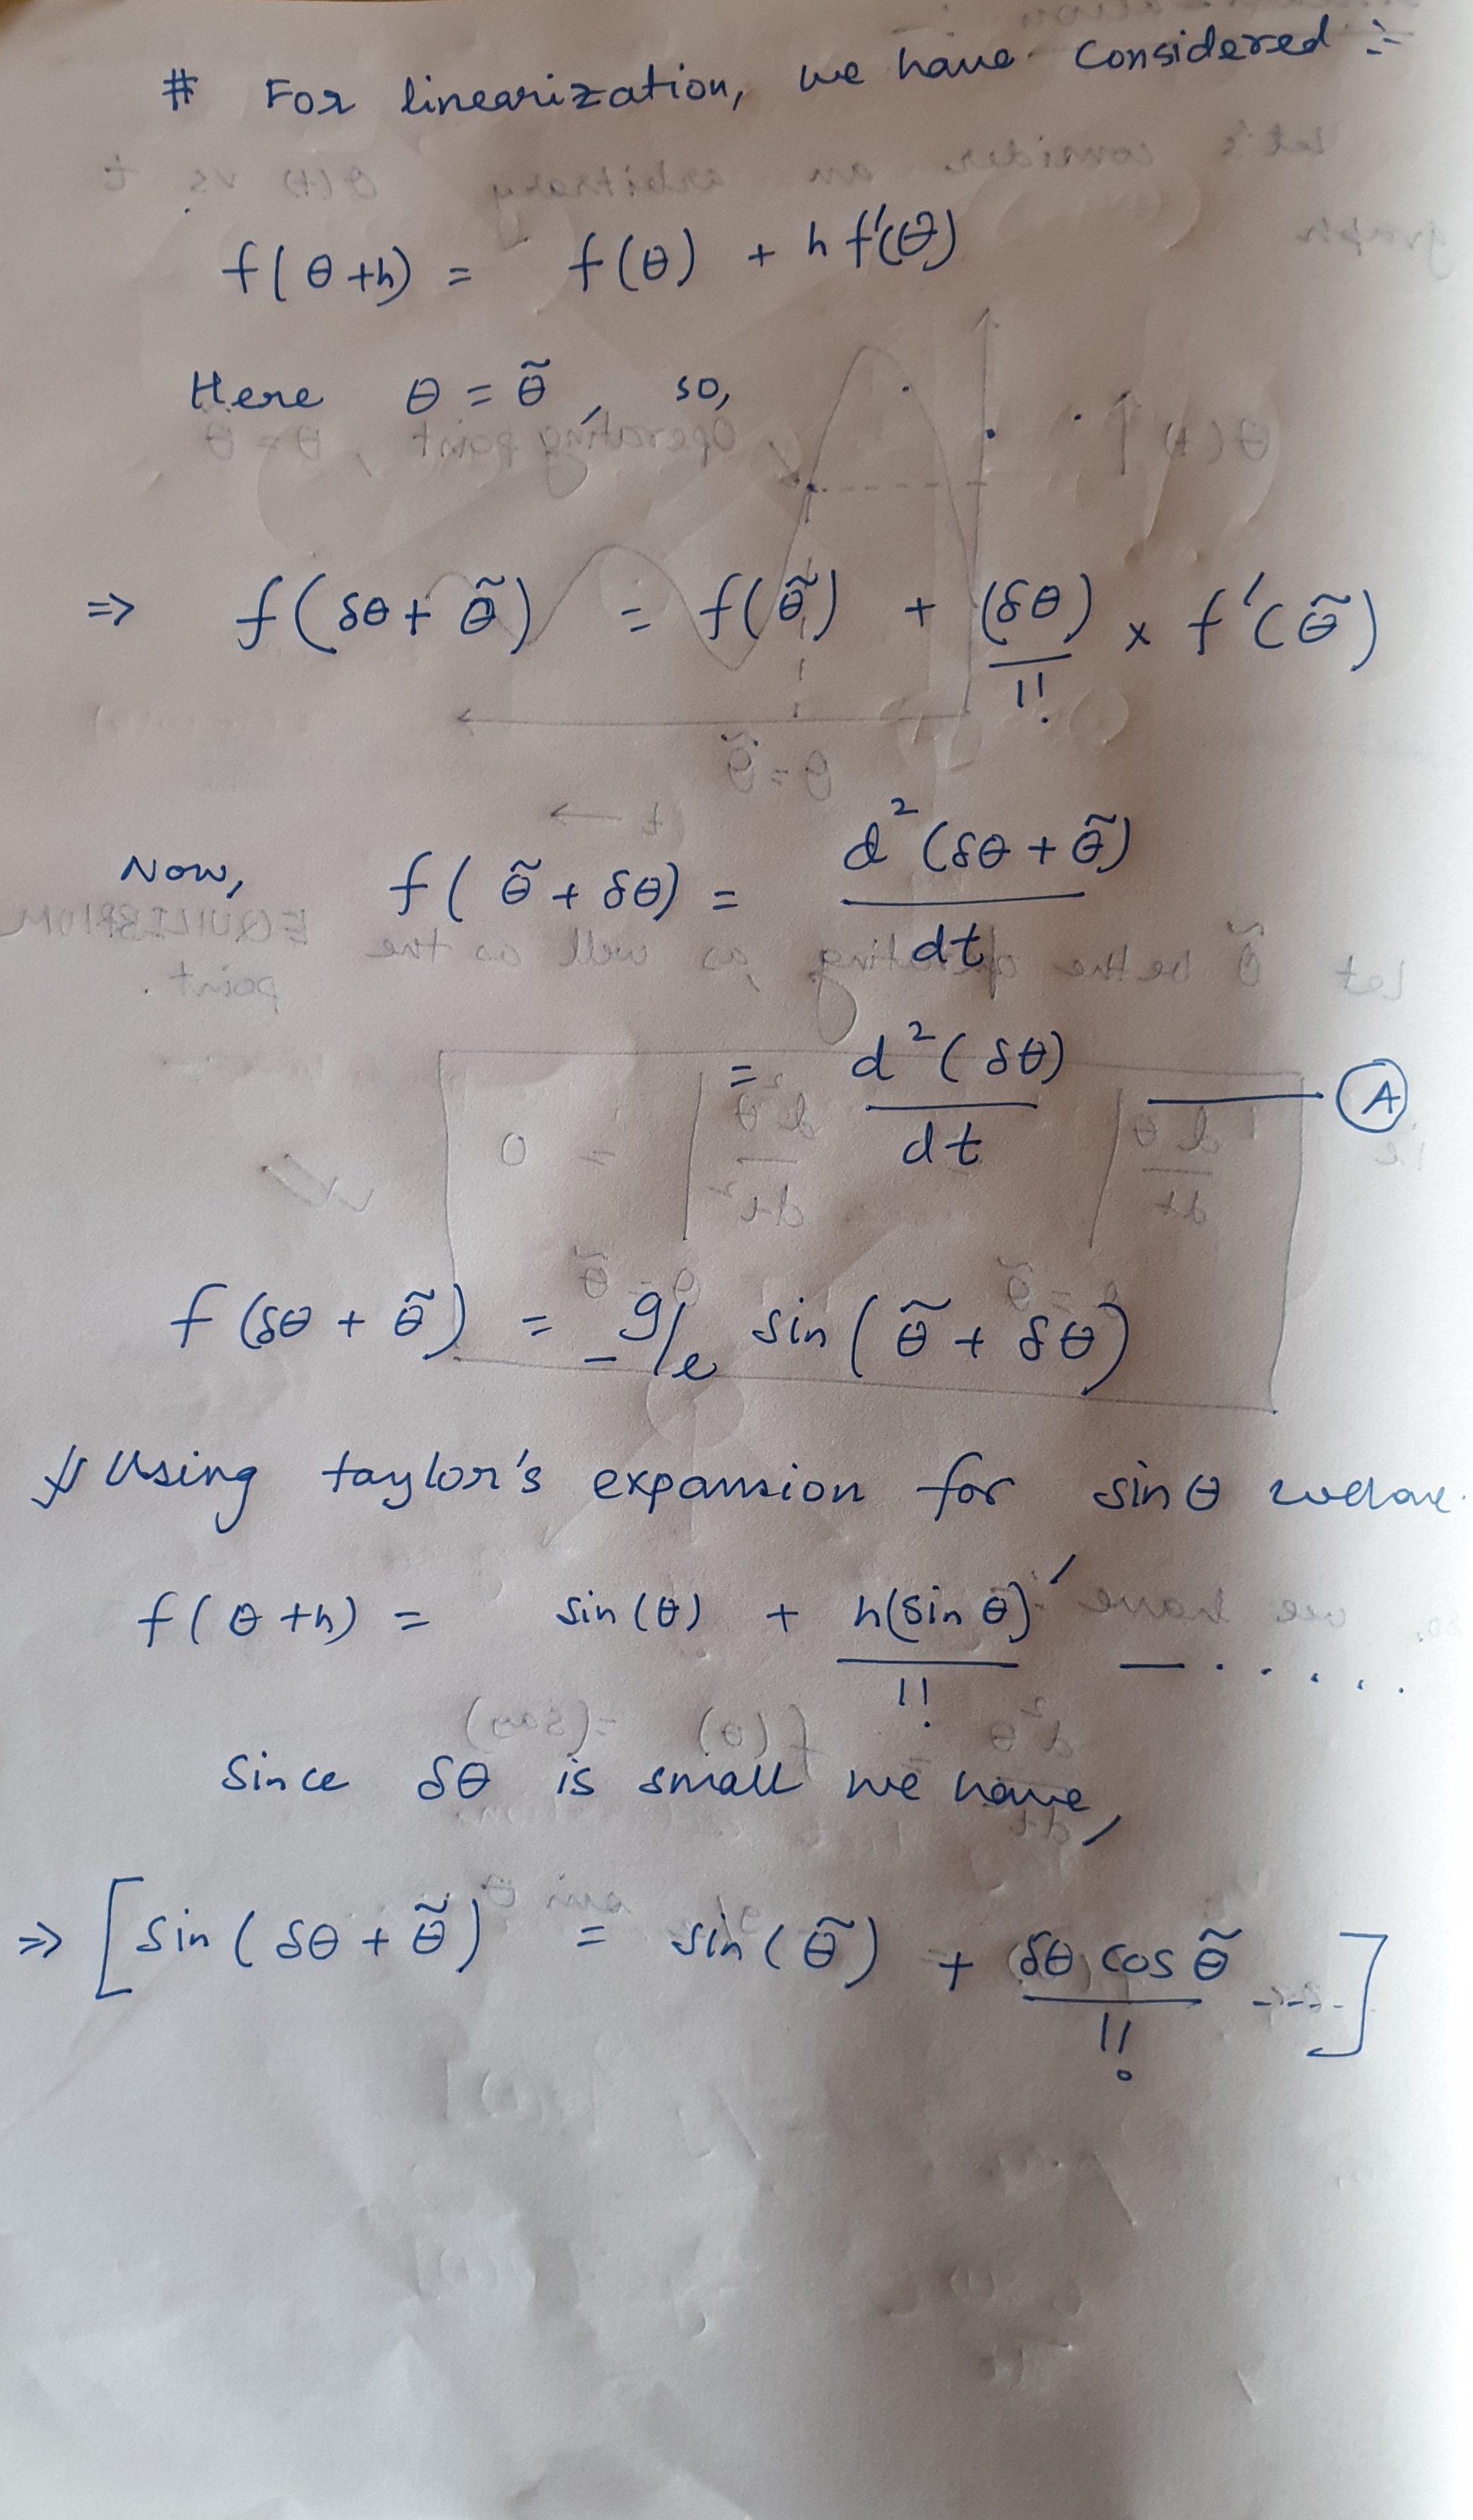 # For linearization, we have considered :-
f(θ+h) = f(θ) + h f'(θ)
Here θ = θ̃, so,
⇒ f(δθ + θ̃) = f(θ̃) + (δθ)/1! × f'(θ̃)
Now, f(θ̃ + δθ) = d²(δθ + θ̃)/dt
= d²(δθ)/dt —— (A)
f(δθ + θ̃) = -g/l sin(θ̃ + δθ)
Using taylor's expansion for sinθ we have
f(θ+h) = sin(θ) + h(sinθ)'/1! — . . . . . .
Since δθ is small we have,
⇒ [sin(δθ + θ̃) = sin(θ̃) + δθ cos θ̃/1! ----]